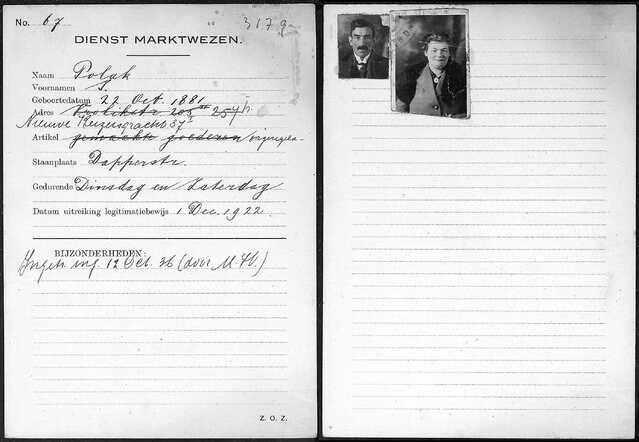 No. 67 3179
DIENST MARKTWEZEN.
Naam Polak
Voornamen S.
Geboortedatum 22 Oct. 1881
Adres Krolikstr 203 257
Nieuwe Keizersgracht 37
Artikel gemaakte goederen
Staanplaats Dapperstr.
Gedurende Dinsdag en Zaterdag
Datum uitreiking legitimatiebewijs 1 Dec. 1922
BIJZONDERHEDEN:
Ingetr. ing. 12 Oct. 36 (door M
Z. O. Z.